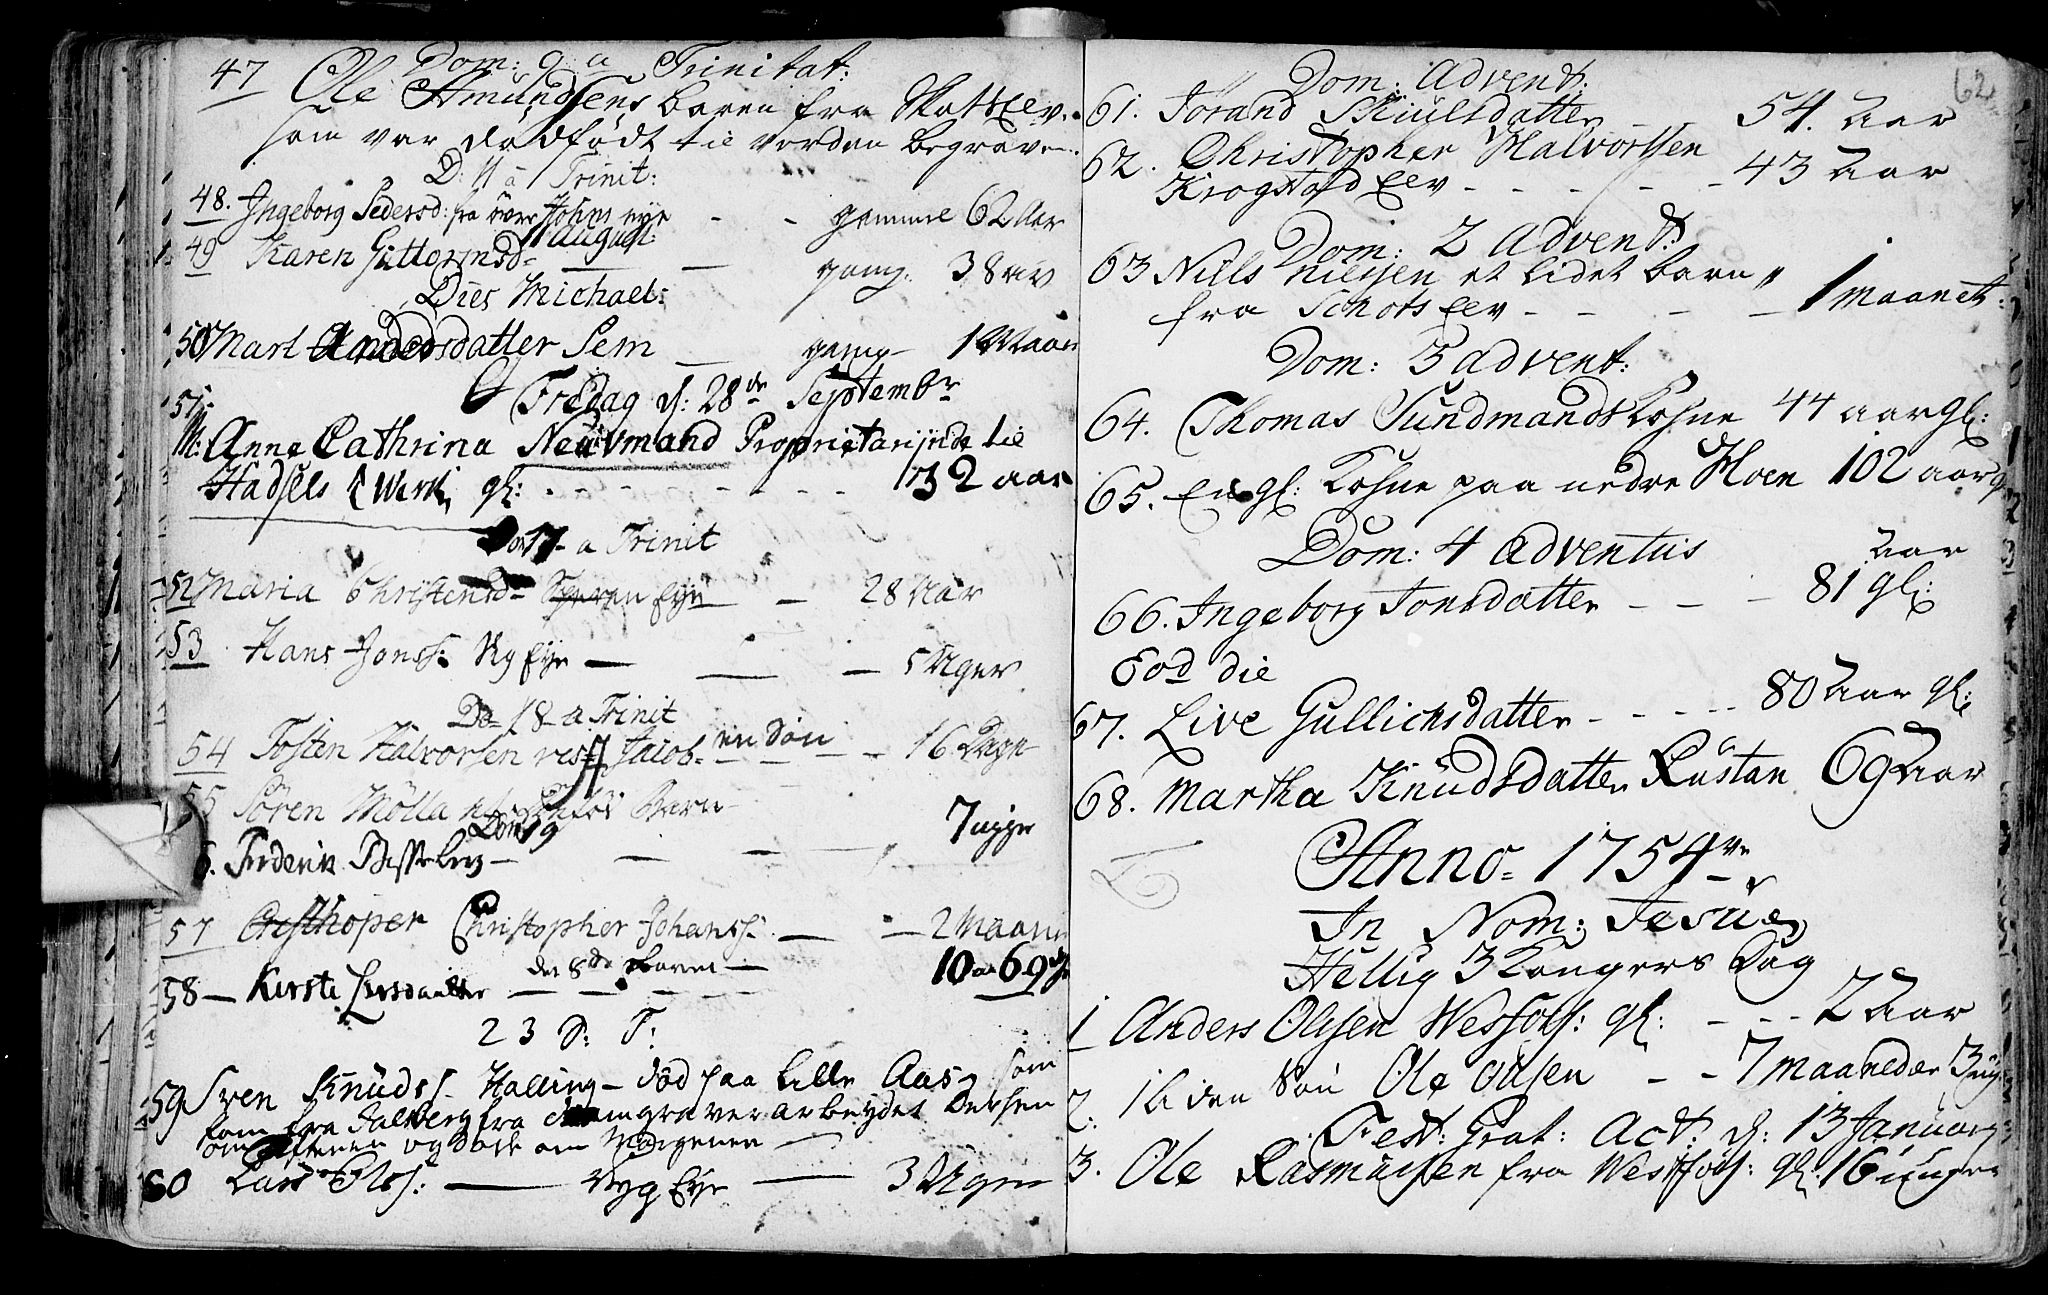 Dom: 9 a Trinitat:
47 Ole Amundsens baren fra Skotselv.
som var dødfødt til Jorden begraven:
D: 11 a Trinit:
48. Ingeborg Pedersd: fra över Johns eye - - gammel 62 Aar
11 August:
49 Karen Guttormsd- — — gamg. 38 aar
Dies Michael:
50 Mari Andersdatter Sem — gamg - 1 Maan
Fredag d: 28de Septembr
51.
M: Anna Cathrina Neuvmand Proprietarinde til
Hadsels Werk gl: - - - - - - 32 aar
Do 17 - a Trinit
52 Maria Christensd- Eye — - 28 Aar
53 Hans Jonss: Ryg Eye — — — 5 Uger
Do 18 a Trinit
54 Tosten Halvorsen Jacob en Søn — 16 Dage
55 Sören Mölla Barn
Dom 19 7 uger
6. Frederik — — —
57 Christhoper Christopher Johanss: — — 2 Maan
den 8de
58 — Kirsti Larsdaatter — — — 10 aar 69
23 S: T:
59 Sven Knudss. Halling - død paa Lille Aas, som
kom fra Jalsberg fra Damgraver arbeydet
om Aftenen og døde om Morgenen —
60 Lars Olss: — Ryg Eye — 3 Uger
62
Dom: Advent:
61. Jorand Skiulsdatter - - 54. Aar
62. Christopher Halvorsen
Krogstad Elv - - - - - 43 Aar
Dom: 2 Advent:
63 Nills Nielsen et lidet barn
fra Schots Elv - - - - 1 Maanet:
Dom: 3 Advent:
64. Thomas Sundmands Kohne 44 aar gl:
65. En gl: Kohne paa nedre Hoen 102 aar g
Dom: 4 Adventus
66. Ingeborg Jonsdatter - - - 81 Aar gl:
Eod die
67. Live Gullichsdatter - - - - - 80 Aar gl:
68. Martha Knudsdatter Rustan 69 Aar
Anno - 1754
In Nom: Jesu
Hellig 3 Kongers Dag
1 Anders Olssen Wesfos: gl: - - - 2 Aar
2. liden Søn Ole Olsen - - 7 maaneder 3 ug
Fest: Grat: Act: d: 13 Januarj
3. Ole Rasmussen fra Westfos: gl: 16 uger